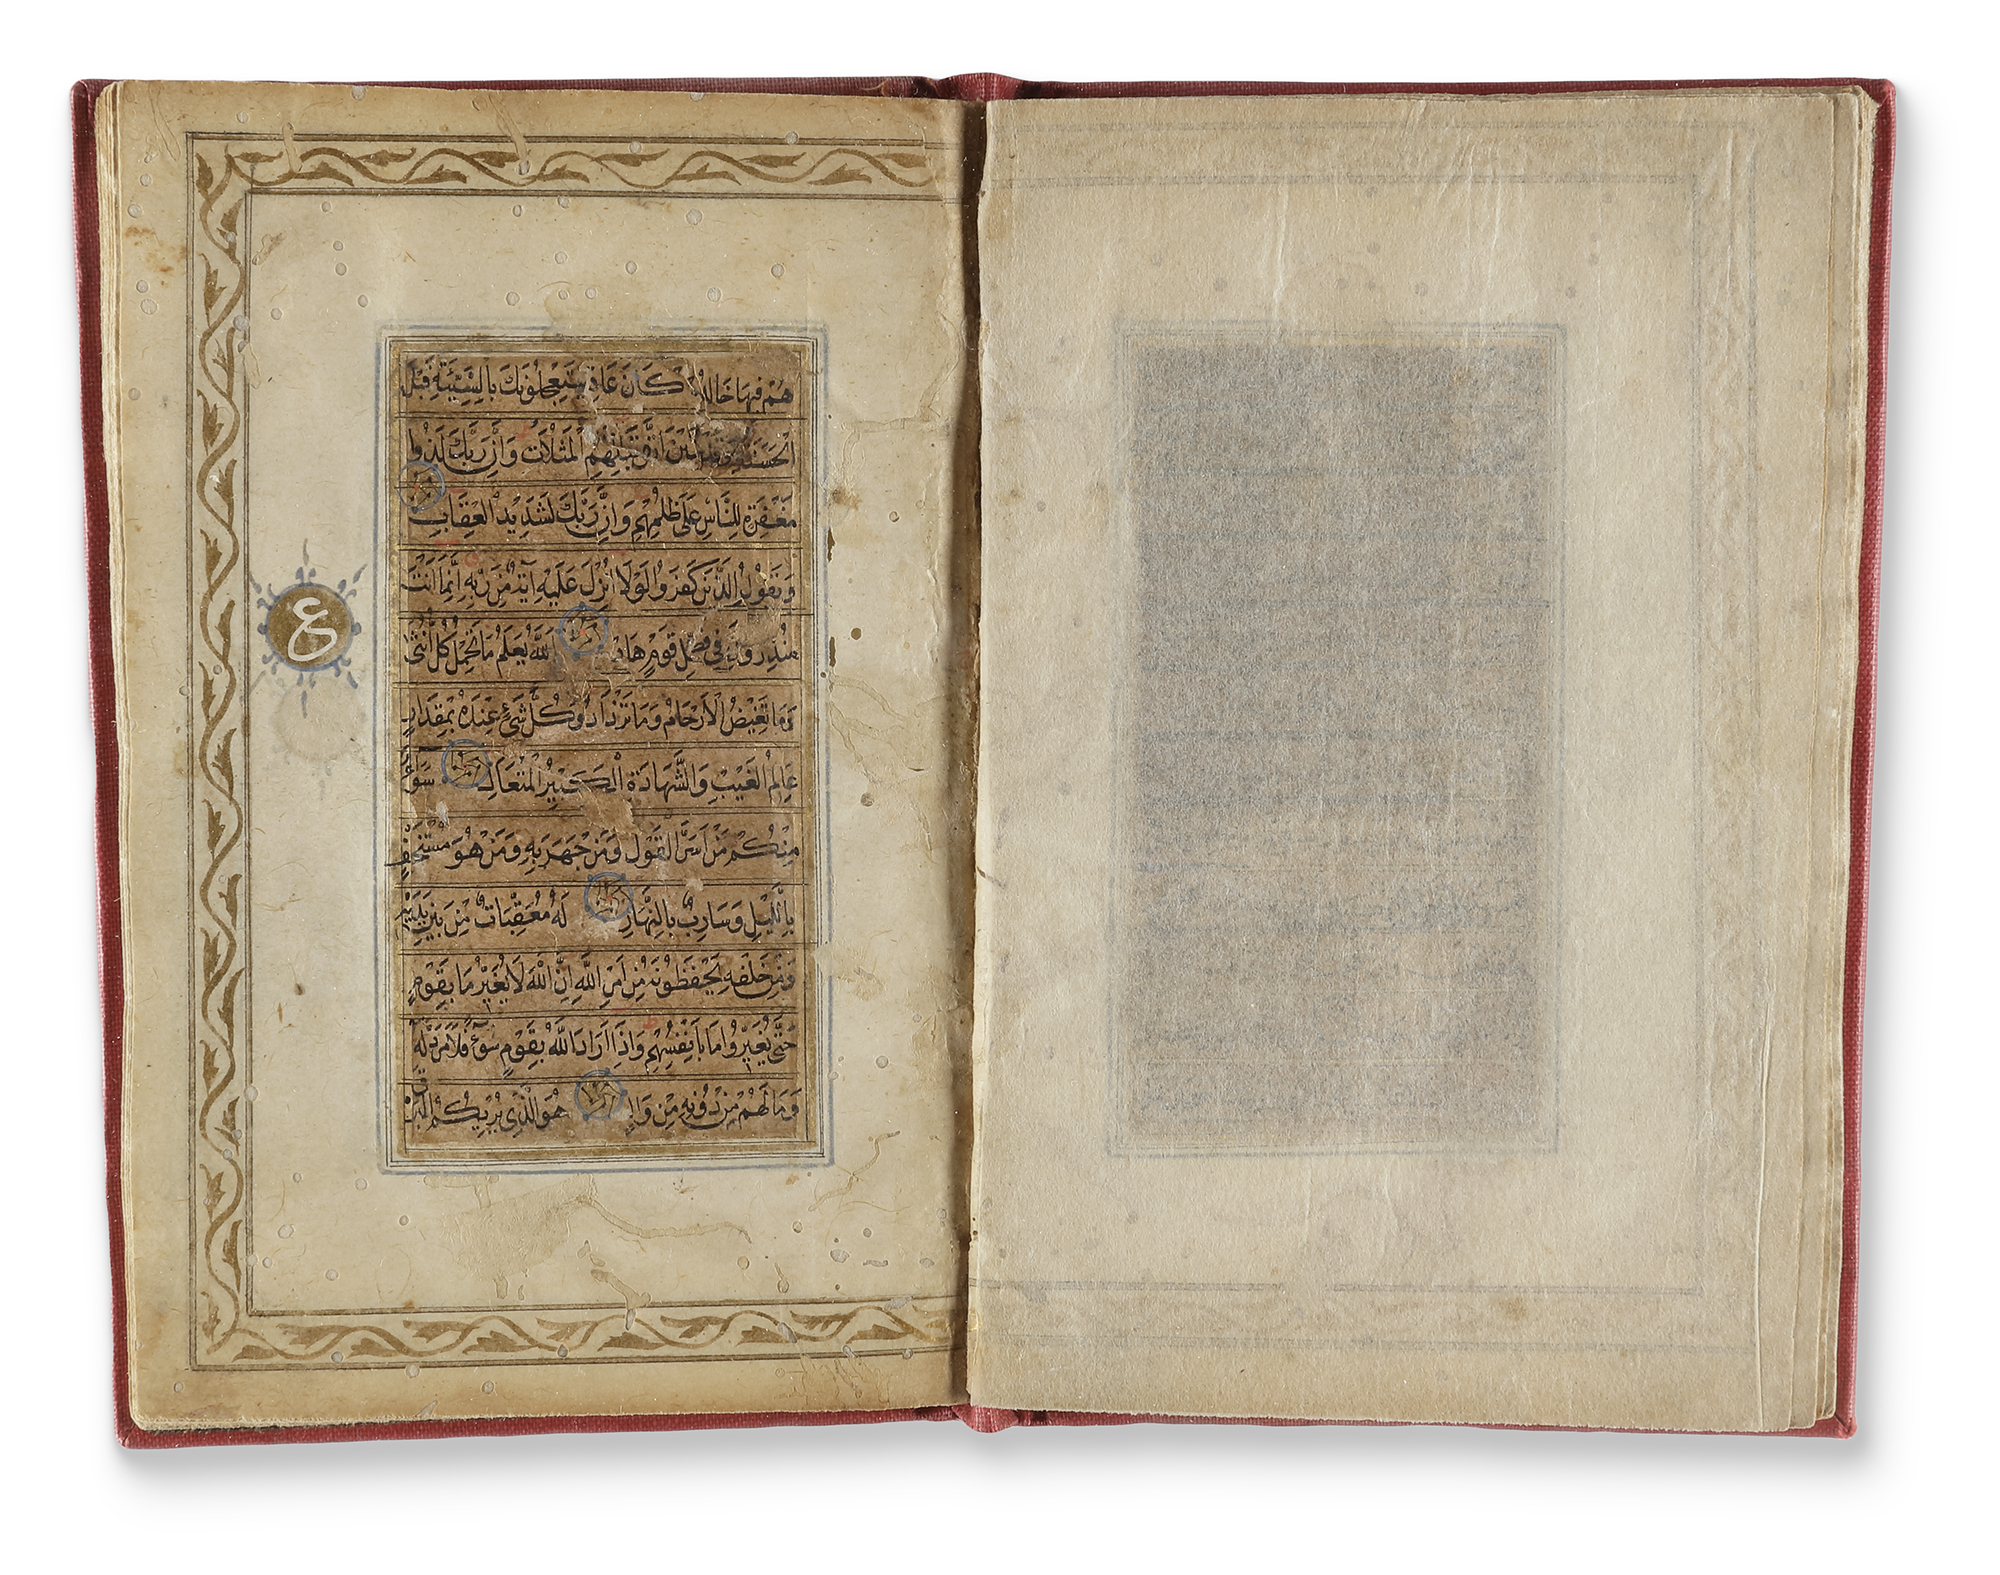 هُمْ فِيهَا كَانَ يَسْتَعْجِلُونَكَ بِالسَّيِّئَةِ قَبْلَ
الْحَسَنَةِ الْمَثُلَاتُ وَاِنَّ رَبَّكَ لَذُوا
مَغْفِرَةٍ لِلنَّاسِ عَلَى ظُلْمِهِمْ وَاِنَّ رَبَّكَ لَشَدِيدُ الْعِقَابِ
وَيَقُولُ الَّذِينَ كَفَرُوا لَوْلَا اُنْزِلَ عَلَيْهِ آيَةٌ مِنْ رَبِّهِ اِنَّمَا اَنْتَ
مُنْذِرٌ قَوْمٍ هَادٍ اَللّٰهُ يَعْلَمُ مَا تَحْمِلُ كُلُّ اُنْثٰى
وَمَا تَغِيضُ الْاَرْحَامُ وَمَا تَزْدَادُ وَكُلُّ شَيْءٍ عِنْدَهُ بِمِقْدَارٍ
عَالِمُ الْغَيْبِ وَالشَّهَادَةِ الْكَبِيرُ الْمُتَعَالِ سَوَآءٌ
مِنْكُمْ مَنْ اَسَرَّ الْقَوْلَ وَمَنْ جَهَرَ بِهِ وَمَنْ هُوَ مُسْتَخْفٍ
بِاللَّيْلِ وَسَارِبٌ بِالنَّهَارِ لَهُ مُعَقِّبَاتٌ مِنْ بَيْنِ يَدَيْهِ
وَمِنْ خَلْفِهِ يَحْفَظُونَهُ مِنْ اَمْرِ اللّٰهِ اِنَّ اللّٰهَ لَا يُغَيِّرُ مَا بِقَوْمٍ
حَتَّى يُغَيِّرُوا مَا بِاَنْفُسِهِمْ وَاِذَا اَرَادَ اللّٰهُ بِقَوْمٍ سُوٓءًا فَلَا مَرَدَّ لَهُ
وَمَا لَهُمْ مِنْ دُونِهِ مِنْ وَالٍ هُوَ الَّذِي يُرِيكُمُ الْبَرْقَ
ع